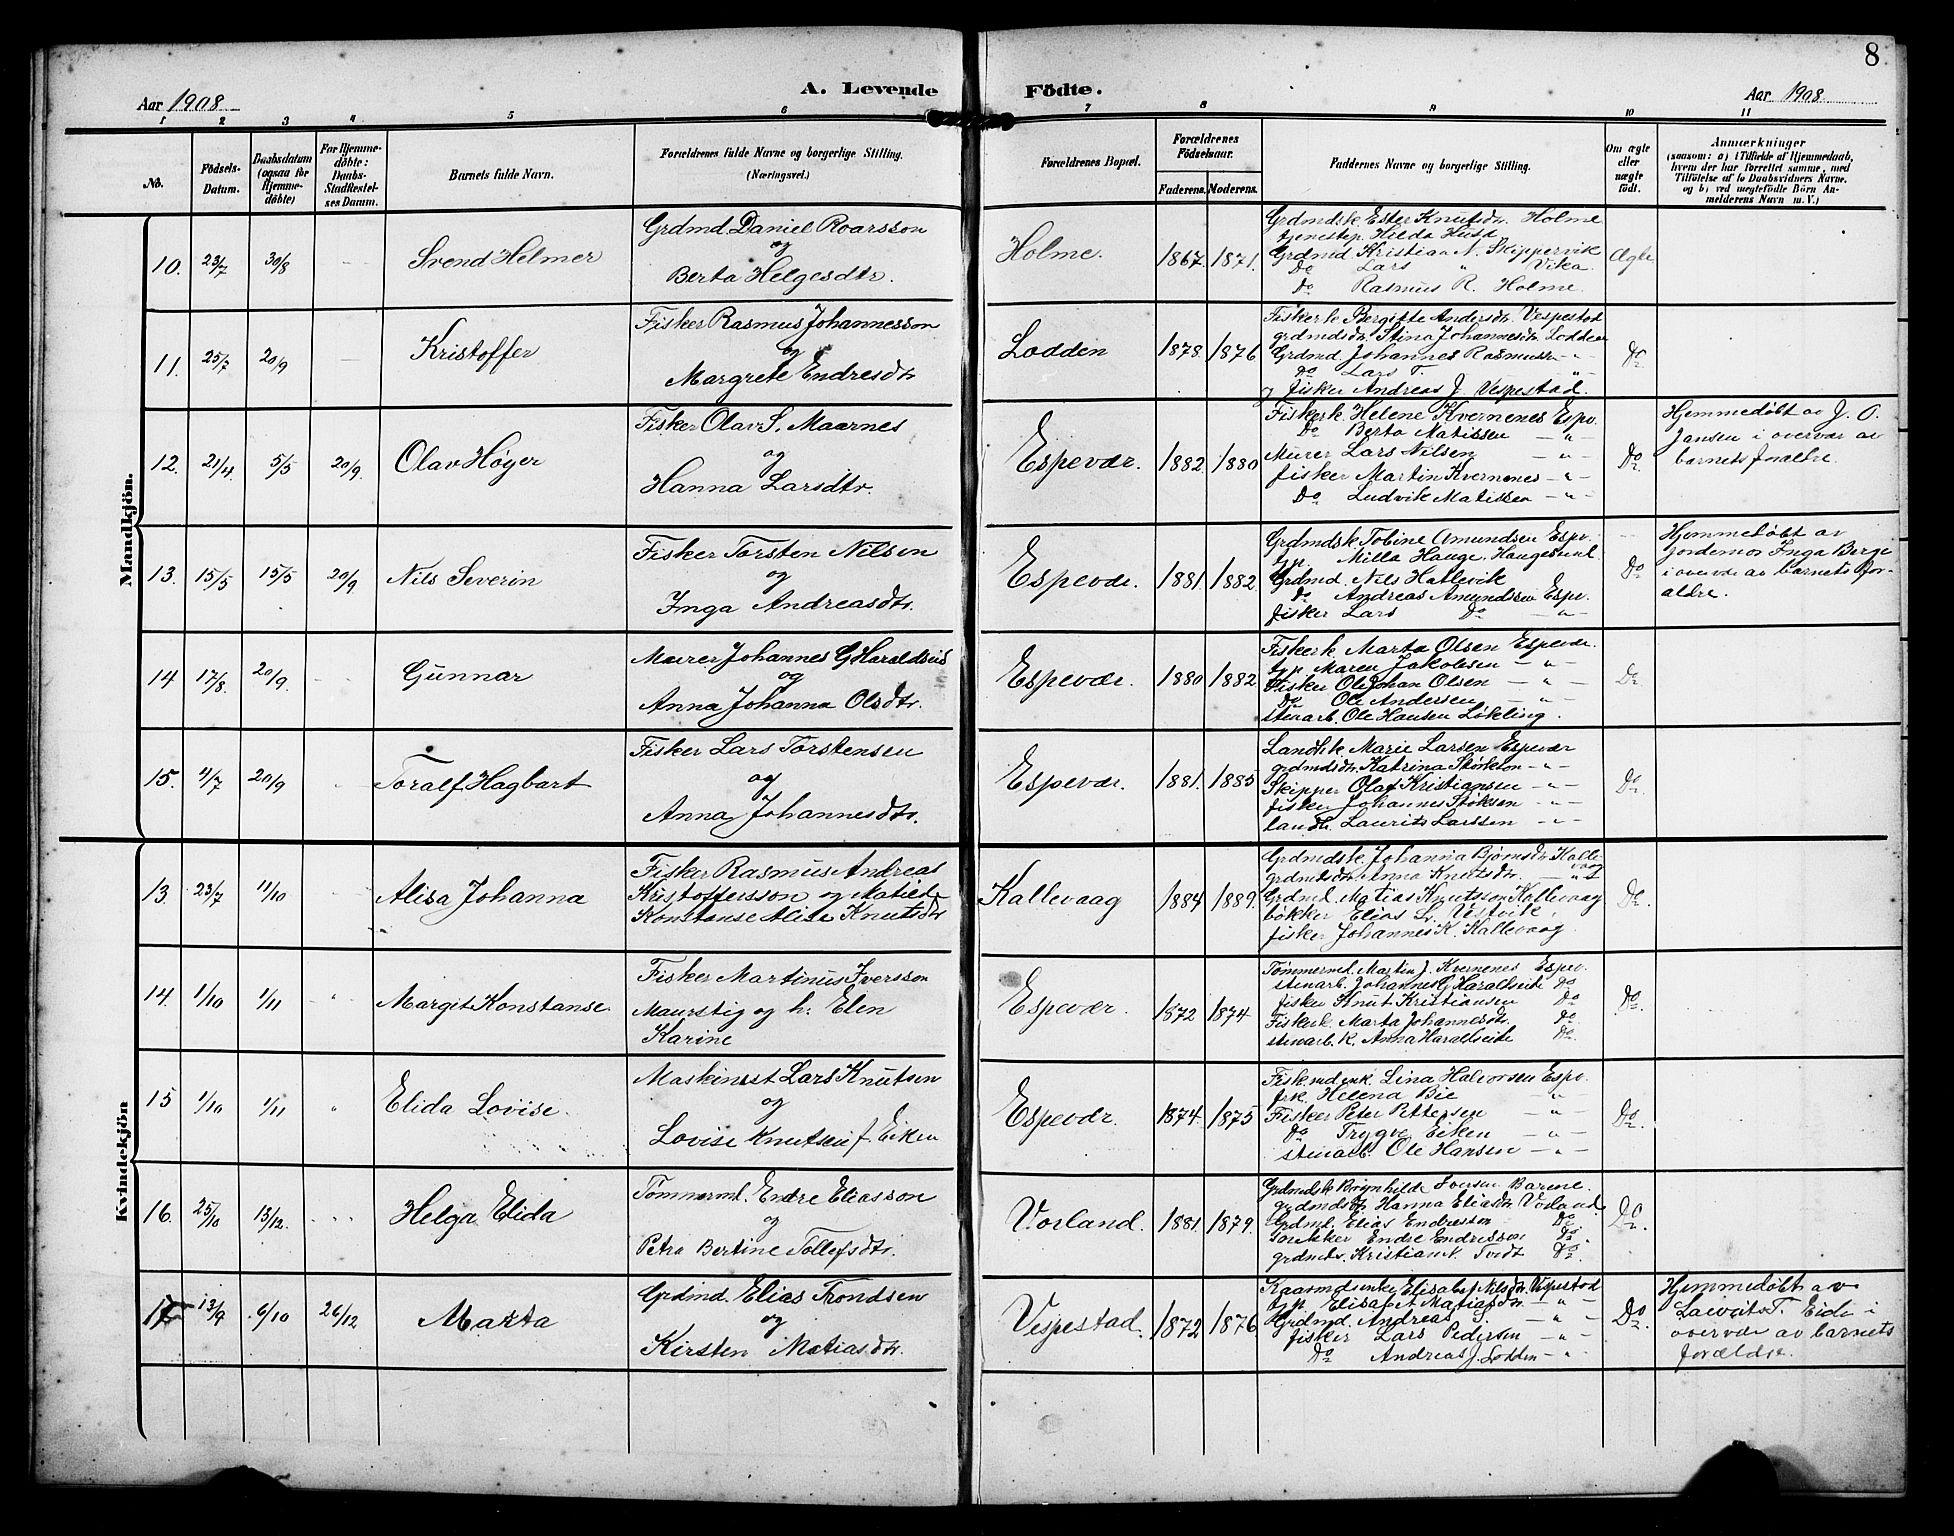 8
Aar 1908
A. Levende Födte.
Aar 1908
1 2 3 4 5 6 7 8 9 10 11
No.
Födsels-Datum.
Daabsdatum (ogsaa for Hjemme-döbte)
For Hjemme-döbte: Daabs-Stadfæstel-ses Datum.
Barnets fulde Navn.
Forældrenes fulde Navne og borgerlige Stilling.
(Næringsvei.)
Forældrenes Bopæl.
Forældrenes Födselsaar.
Faderens. Moderens.
Faddernes Navne og borgerlige Stilling.
Om ægte eller uægte födt.
Anmærkninger
(saasom: a) i Tilfælde af Hjemmedaab,
hvem der har forrettet samme, med
Tilföielse af to Daabsvidners Navne.
og b) ved uegtefödte Börn An-
melderens Navn m. V.)
Mandkjön.
10. 23/7 30/8 Svend Helmer
Grdmd. Daniel Roarsson
og
Berta Helgesdtr.
Holme. 1867. 1871.
Grdmdsk. Ester Knutsdtr. Holme
tjenestep. Hilda Husd
Grdmd Kristian N. Skippervik
Do Lars " Vika.
Do Rasmus R. Holme.
Ægte
11. 25/7 20/9 Kristoffer
Fisker Rasmus Johannesson
og
Margrete Endresdtr
Lodden 1878. 1876.
Fiskerk. Bergitte Andersdtr. Vespestad
grdmdsdtr. Stina Johannesdtr. Lodden
Grdmd Johannes Rasmussen - " -
Do Lars T. "
og fisker Andreas J. Vespestad.
Do
12. 21/4. 5/5 20/9. Olav Høyer
Fisker Olav S. Maarnes
og
Hanna Larsdtr.
Espevær. 1882. 1880.
Fiskerk. Helene Kvernenes Espv.
Do Berta Matissen - " -
Murer Lars Nilsen - " -
fisker Martin Kvernenes - " -
Do Ludvik Matissen - " -
Do
Hjemmedøbt av J. O.
Jansen i overvær av
barnets foraldre.
13. 15/5 15/5 20/9 Nils Severin
Fisker Torsten Nilsen
og
Inga Andreasdtr.
Espevær. 1881. 1882.
Grdmdsk. Tobine Amundsen Espv.
tjp. Milla Hauge. Haugesund.
Grdmd. Nils Hatlevik
Do Andreas Amundssen Espv.
fisker Lars Do - " -
Do
Hjemmedøbt av
Jordemor Inga Berge
i overvær av barnets for-
aldre.
14 17/8. 20/9. Gunnar
Murer Johannes G Haraldseid
og
Anna Johanna Olsdtr.
Espevær. 1880 1882
Fiskerk. Marta Olsen Espevær.
tjp. Maren Jakobsen - " -
Fisker Ole Johan Olsen - " -
Do Ole Andersen - " -
stenarb. Ole Hansen Løkling.
Do
15. 4/7 20/9 Toralf Hagbart
Fisker Lars Torstensen
og
Anna Johannesdtr.
Espevær. 1881. 1885
Landhk. Marie Larsen Espevær
grdmdsdtr. Katrina - " -
Skipper Olaf Kristiansen - " -
fisker Johannes - " -
landh. Laurits Larssen - " -
Do
Kvindekjön
13. 23/7 11/10 Alisa Johanna
Fisker Rasmus Andreas
Kristoffersson og Matilde
Konstanse Alise Knutsdtr
Kallevaag 1884 1889.
Grdmdsk. Johanna Bjørnsdtr. Kalle-
vaag
grdmdsdtr. Anna Knutsdtr. - " -
Grdmd. Matias Knutsson Kallevaag
bøkker Elias L. Vestvik,
fisker Johannes K. Kallevaag
Do
14. 1/10 1/11 Margit Konstanse.
Fisker Martinus Iversson
Maurstig og h. Elen
Karine
Espevær. 1872 1874
Tømmermd. Martin J. Kvernenes Espv.
stenarb. Johannes G Haraldseide Do
fisker Knut Kristiansen Do
Fiskerk. Marta Johannesdtr. Do
stenarb. k. Anna Haraldseide Do
Do
15 1/10 1/11 Elida Lovise.
Maskinist Lars Knutsen
og
Lovise Knutsen f. Eiken
Espevær. 1874. 1875
Fiskmdenk. Lina Halvorsen Espv.
frk. Helena Bie - " -
Fisker Peter Pettersen - " -
Do Trygve Eiken - " -
stenarb. Ole Hansen - " -
Do
16. 25/10 13/12. Helga Elida
Tømmermd. Endre Eliasson
og
Petra Bertine Tollefsdtr.
Vorland. 1881 1879.
Grdmdsk Brynhilde Iversen Barene.
grdmdsdtr. Hanna Eliasdtr Vorland
Grdmd. Elias Endresson Do
Endre Endresson Do
Kristian Tvedt Do
Do
17 13/9 6/10 26/12 Marta
Grdmd. Elias Trondsen
og
Kirsten Matiasdtr.
Vespestad. 1872 1876
Kaarmdsenke Elisabet Nilsdtr Vespestad
tjp. Elisabet Matiasdtr - " -
Grdmd. Andreas - " -
fisker Lars Pedersen - " -
Do Andreas J. Lodden - " -
Do
Hjemmedøbt av
Laurits T. Eide i
overvær av barnets
forældre.